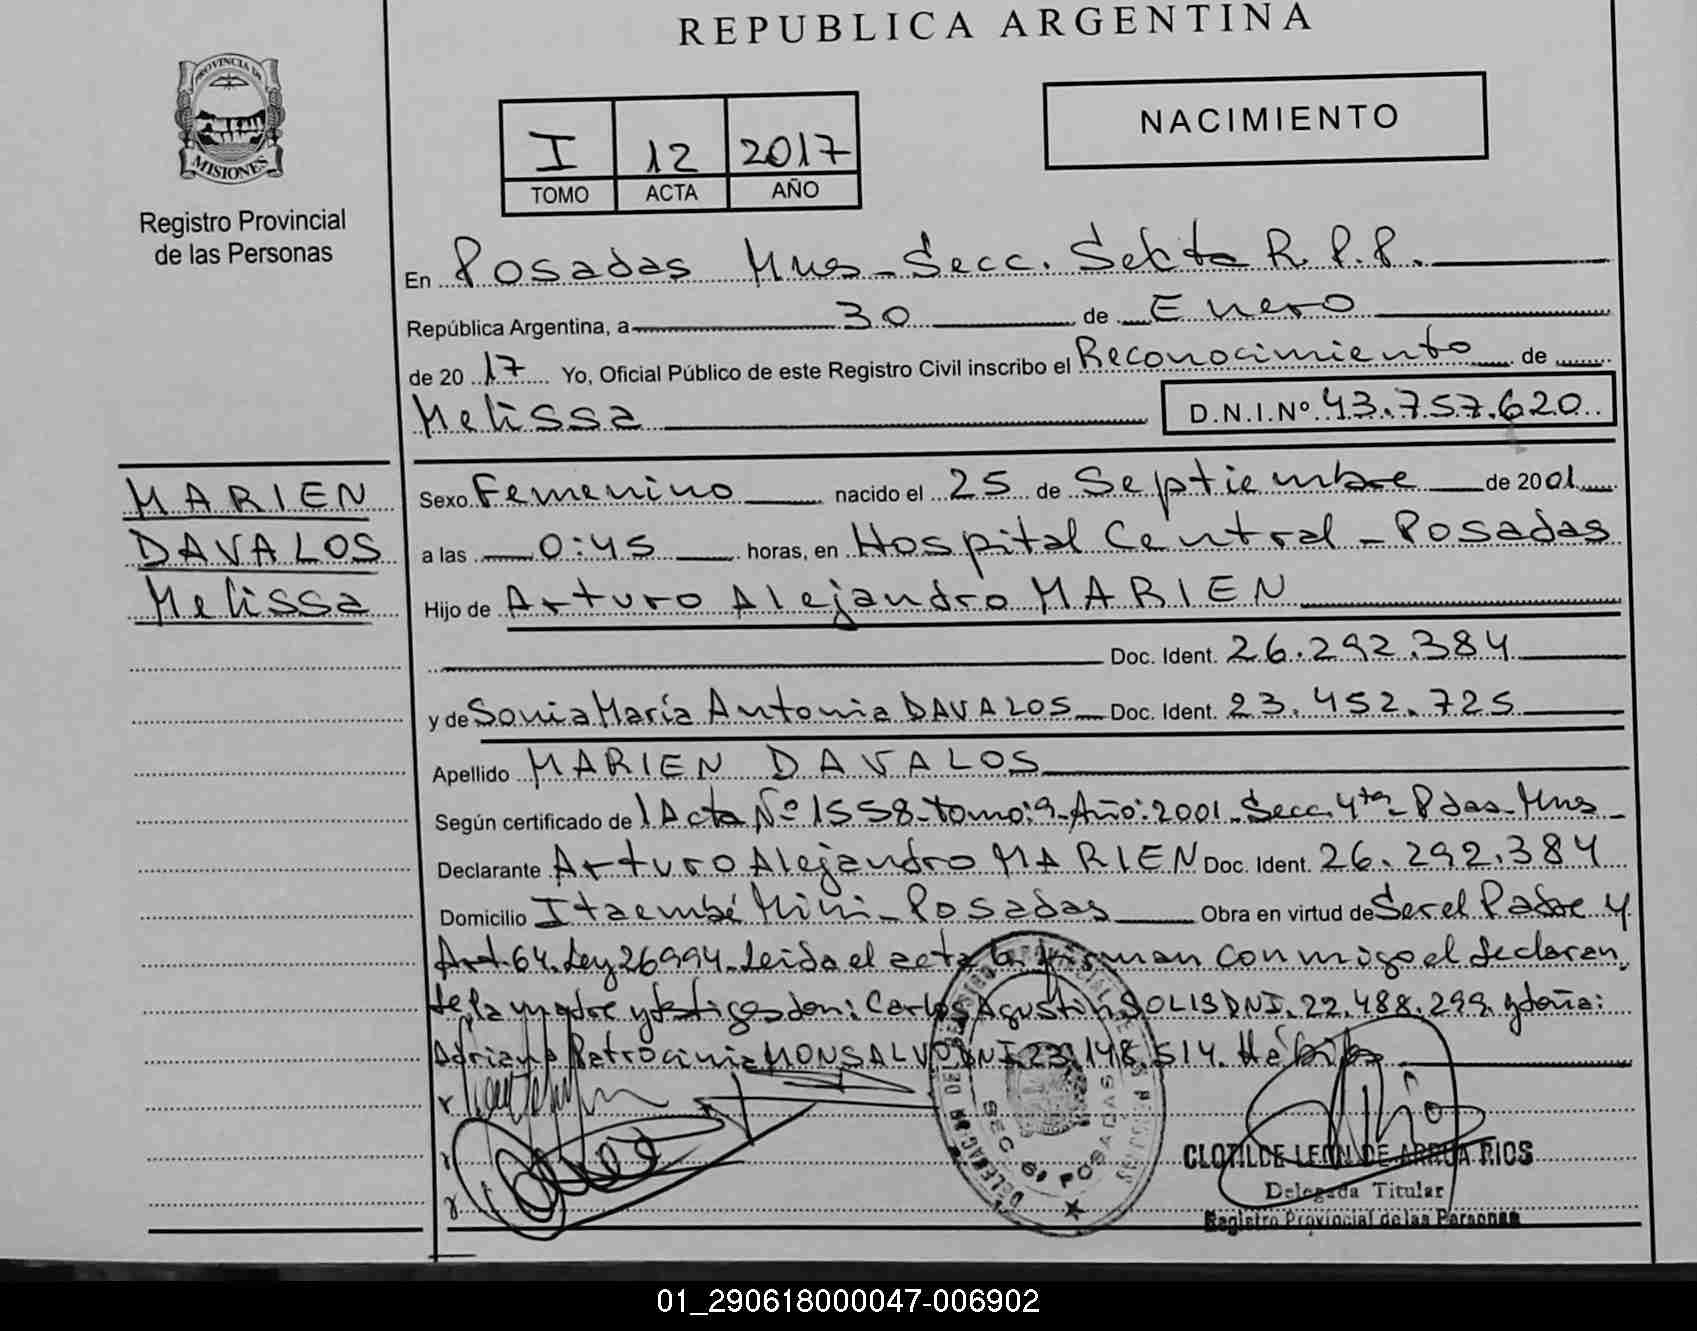 REPUBLICA ARGENTINA
PROVINCIA DE
MISIONES
Registro Provincial
de las Personas
I 12 2017
TOMO ACTA AÑO
NACIMIENTO
En Posadas Mnes - Secc. Sexta R. P. P.
República Argentina, a 30 de Enero
de 20 17 Yo, Oficial Público de este Registro Civil inscribo el Reconocimiento de
Melissa D.N.I.Nº 43.757.620
MARIEN
DAVALOS
Melissa
Sexo Femenino nacido el 25 de Septiembre de 2001
a las 0:45 horas, en Hospital Central - Posadas
Hijo de Arturo Alejandro MARIEN
Doc. Ident. 26.292.384
y de Sonia María Antonia DAVALOS Doc. Ident. 23.452.725
Apellido MARIEN DAVALOS
Según certificado de / Acta Nº 1558 - tomo: 9 - Año: 2001 - Secc. 4ta - Pdas - Mnes -
Declarante Arturo Alejandro MARIEN Doc. Ident. 26.292.384
Domicilio Itaembé Mini - Posadas Obra en virtud de Ser el Padre y
Art. 64. Ley 26994. Leida el acta la firman conmigo el declaran
te, la madre y testigos don: Carlos Agustin SOLIS DNI. 22.488.299 y doña:
Adriana Patrocinia MONSALVO DNI 23.148.514. Hábiles
DELEGACION DEL REGISTRO PROVINCIAL DE LAS PERSONAS
SEC 6ª POSADAS
CLOTILDE LEON DE ARRUA RIOS
Delegada Titular
Registro Provincial de las Personas
01_290618000047-006902